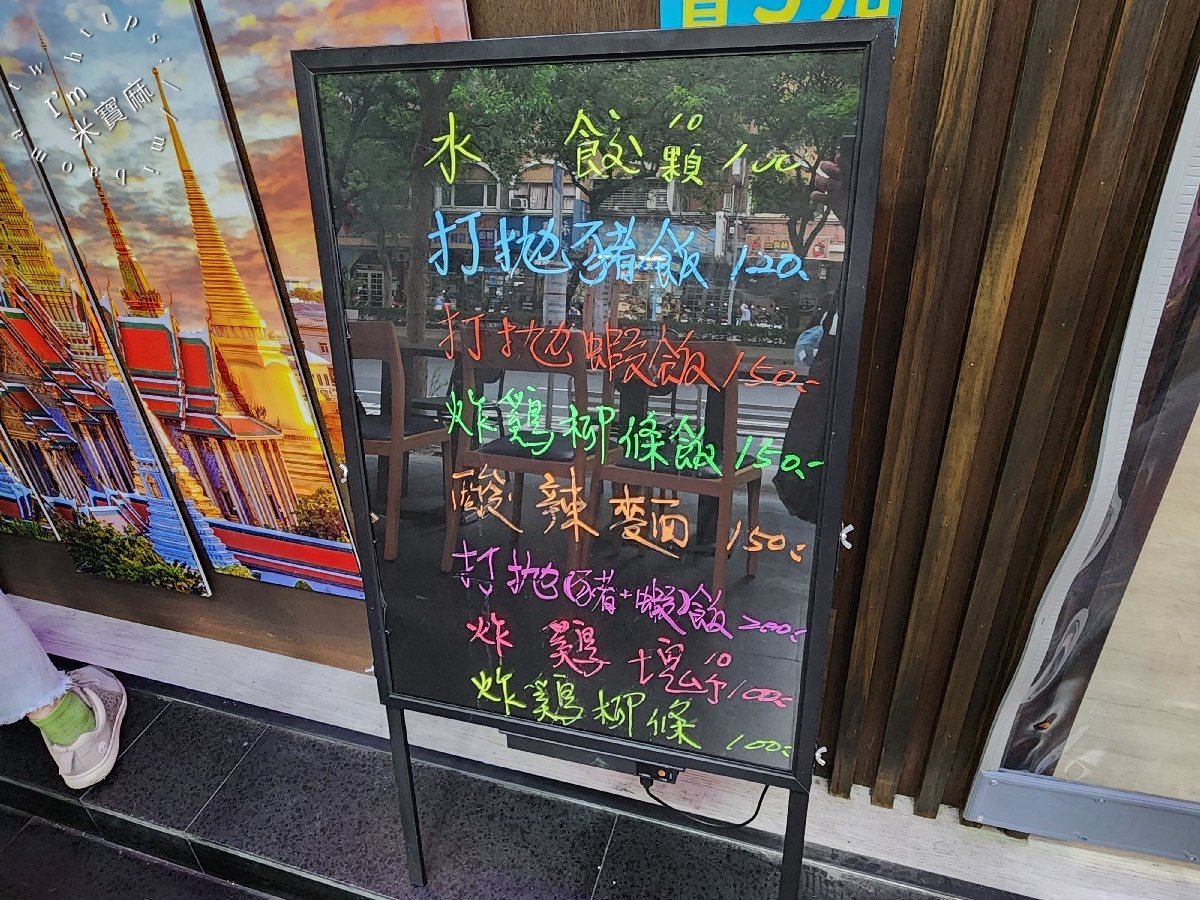 I'm
米寶麻
水 餃 10顆 100
打拋豬飯 120.
打拋蝦飯 150.-
炸雞柳條飯 150.-
酸辣麵 150.-
打拋(豬+蝦)飯 200.-
炸雞塊10 100.-
炸雞柳條 100.-